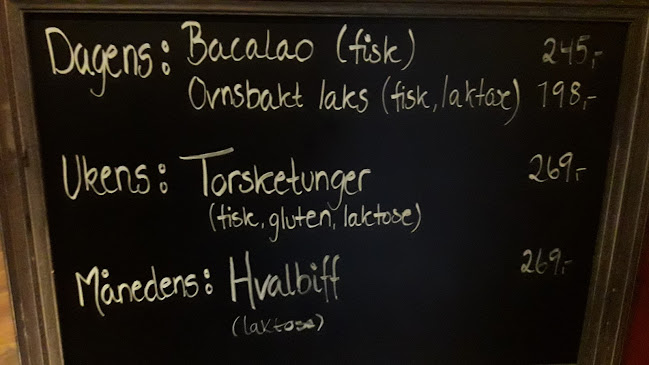 Dagens: Bacalao (fisk) 245,-
Ovnsbakt laks (fisk, laktose) 198,-
Ukens: Torsketunger 269,-
(fisk, gluten, laktose)
Månedens: Hvalbiff 269,-
(laktose)